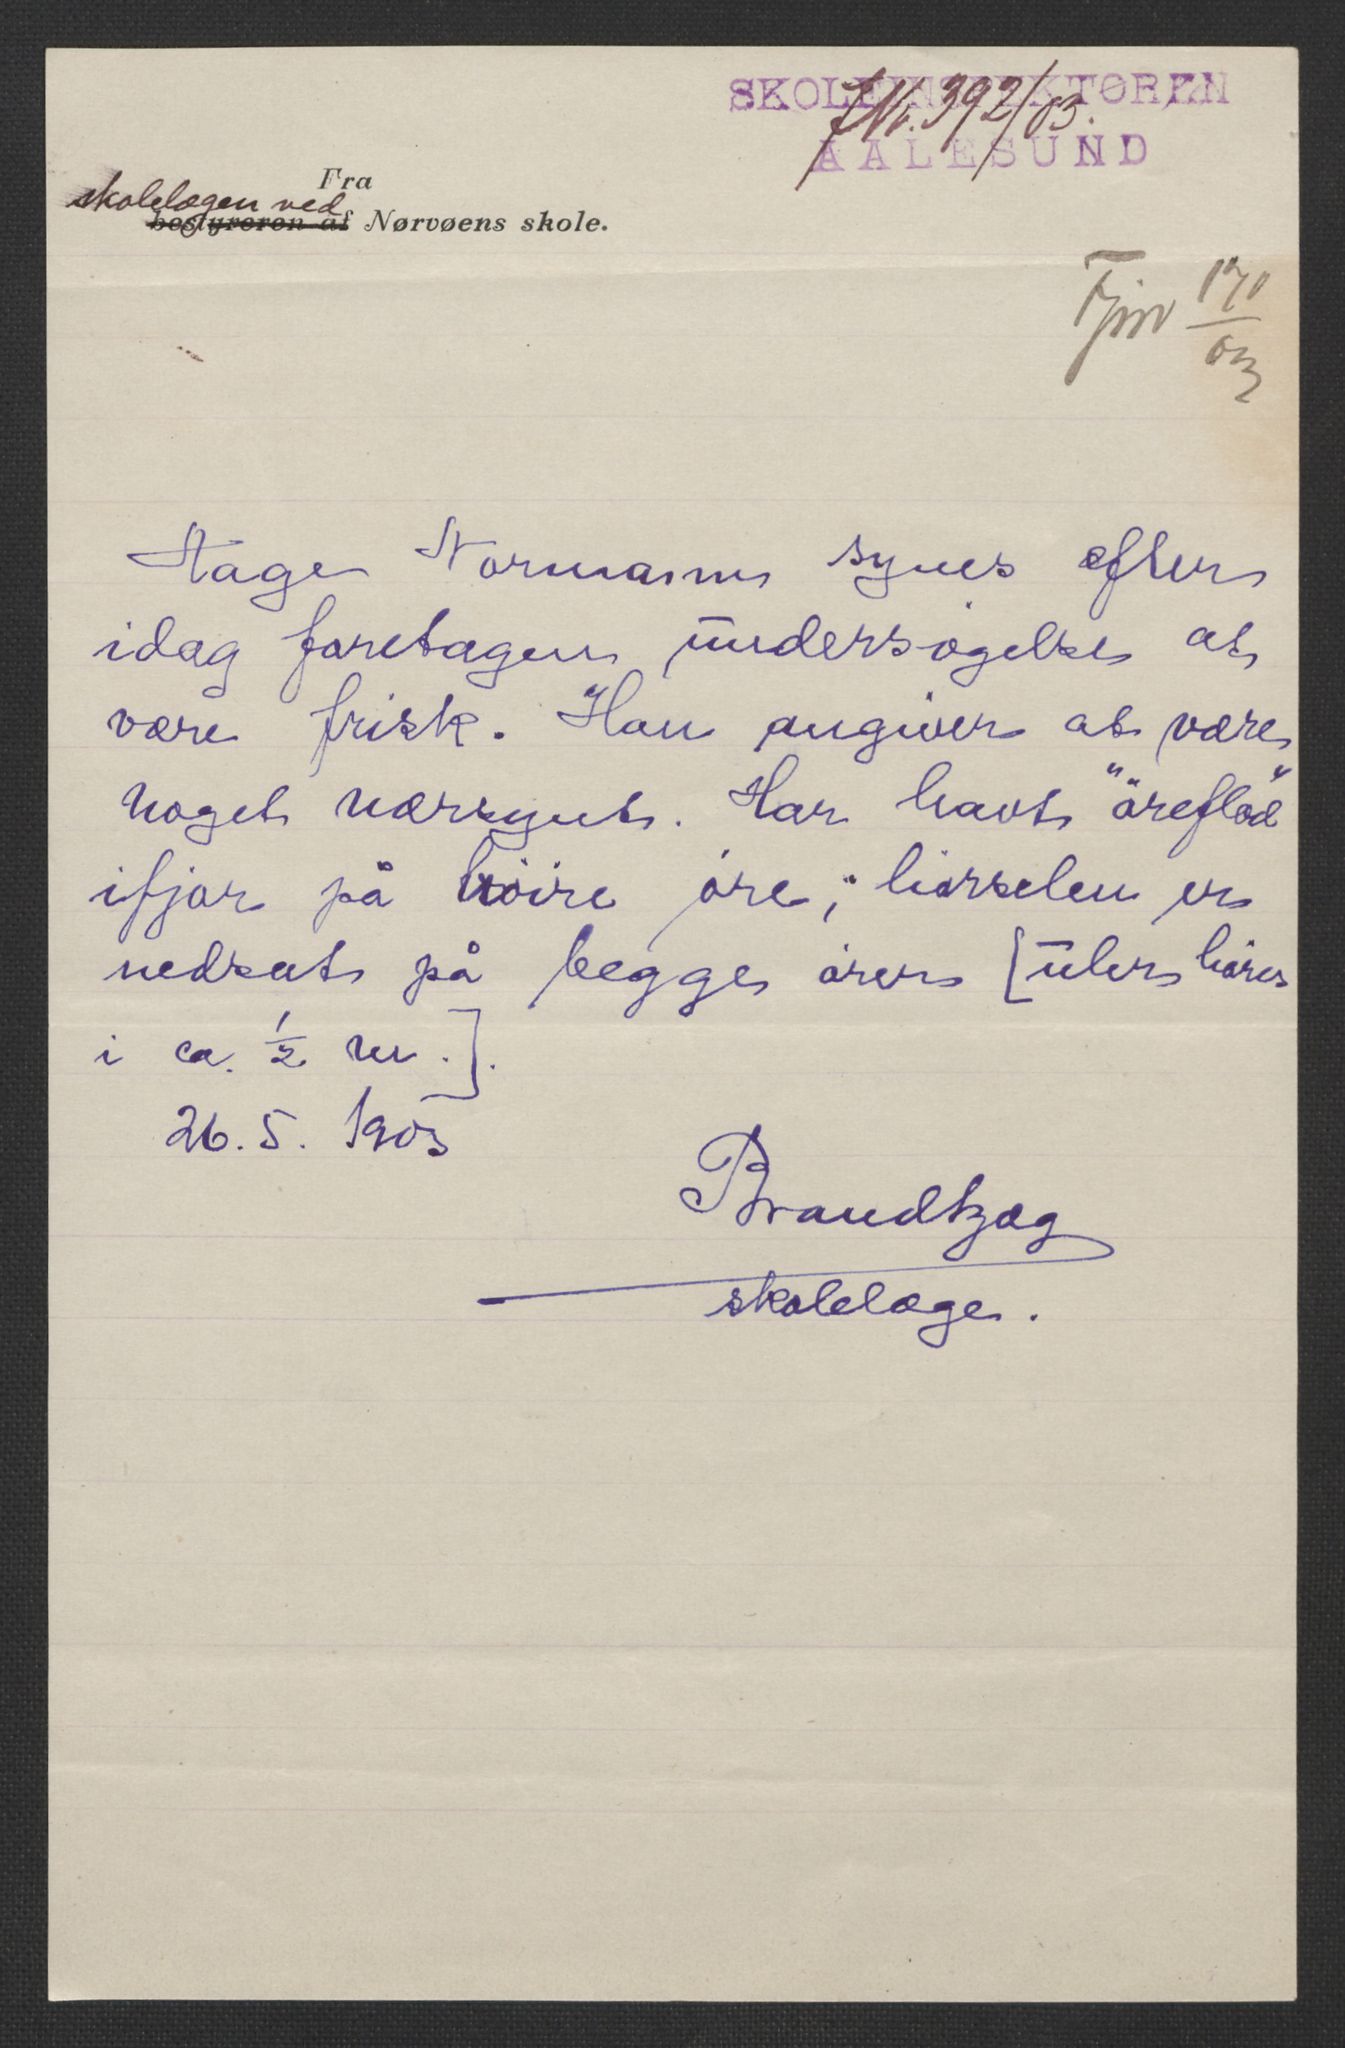 SKOLEINSPEKTØREN
JNr. 392/03.
AALESUND
Fra
skolelægen ved
bestyreren af Nørvøens skole.
170
03
Aage Normann synes efter
idag foretagen undersøgelse at
være frisk. Han angiver at være
noget nærsynt. Har havt "øreflod"
ifjor på høire øre; hørselen er
nedsat på begge ører [uhr høres
i ca. 1/2 m.].
26.5.1903
Brandtzæg
skolelæge.